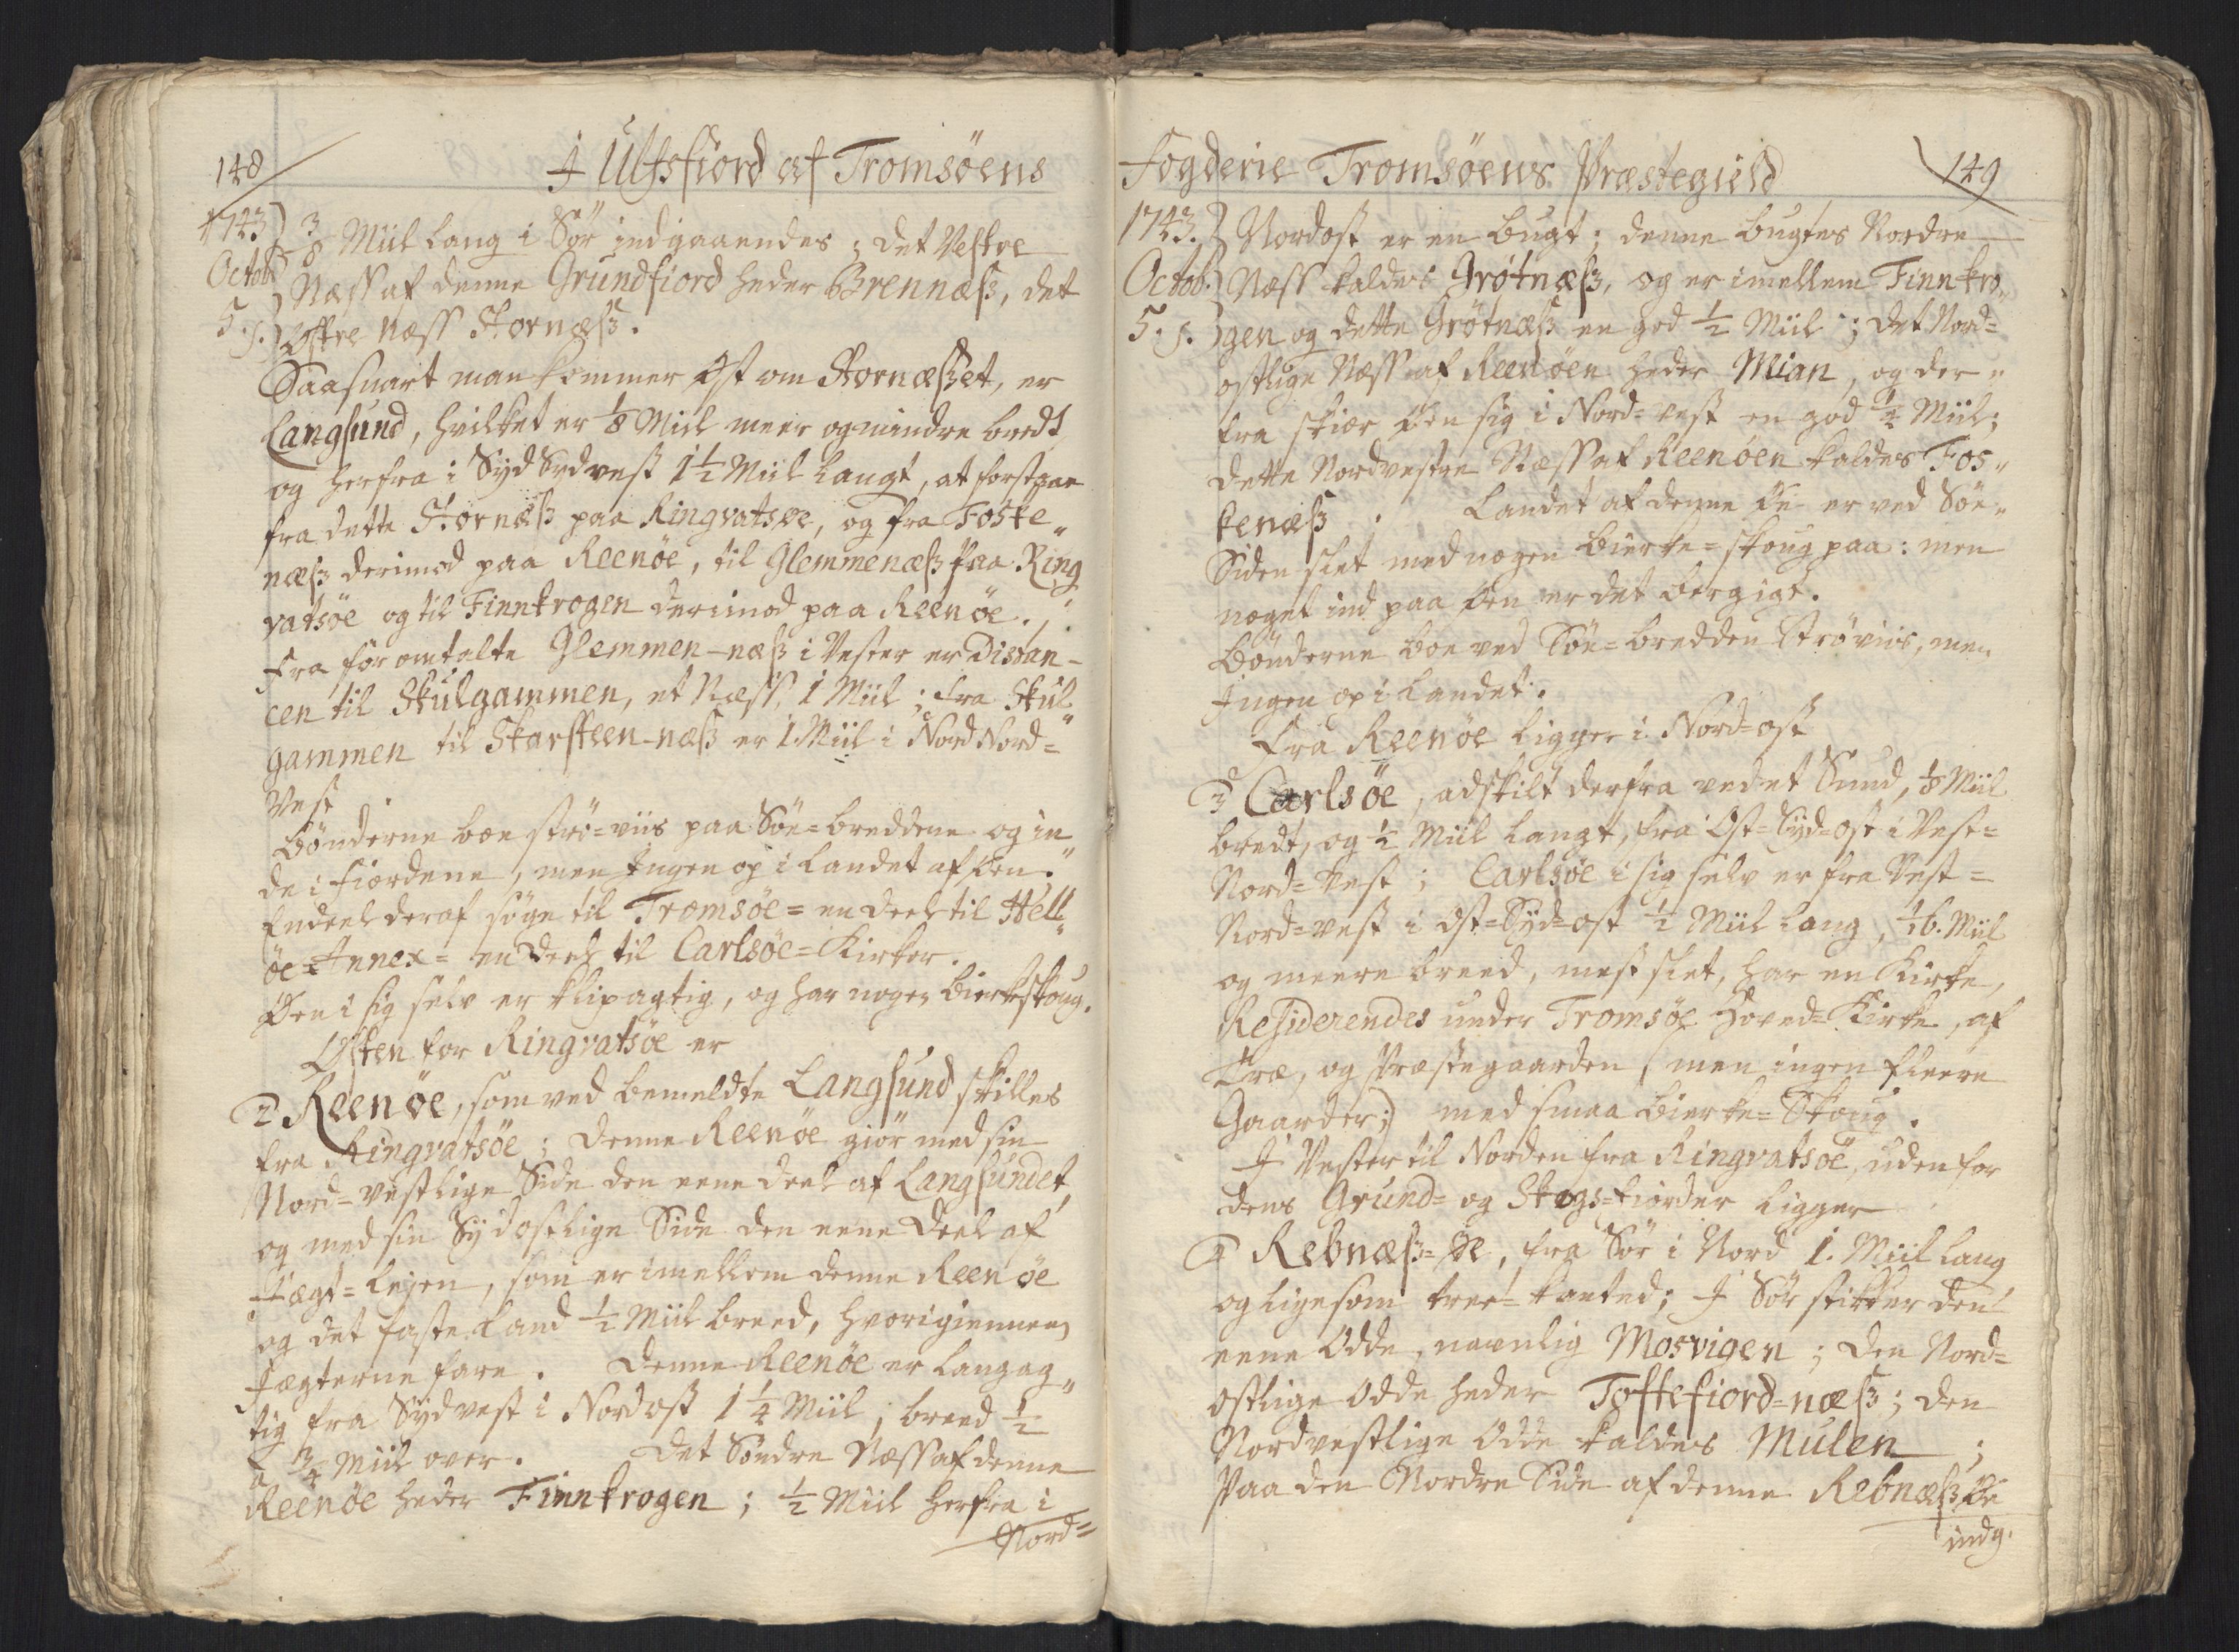 148
I Ulfsfiord af Tromsöens
1743
Octob
5. s.
3/8 Miil lang i Sør indgaaendes; det Vestre
Næss af denne Grundfiord heder Brennæss, det
Østre Næss Stornæss.
Saasnart man kommer Øst om Stornæsset, er
Langsund, hvilket er 1/8 Miil meer og mindre bredt
og herfra i Syd Sydvest 1 1/2 Miil langt, at forstaae
fra dette Stornæss paa Ringvatsøe, og fra Foske„
næss derimod paa Reenöe, til Glemmenæss paa Ring„
vatsöe og til Finnkrogen derimod paa Reenöe.
Fra för omtalte Glemmen-næss i Vester er Distan-
cen til Skulgammen, et Næss, 1 Miil; fra Skul„
gammen til Skarsteen-næss er 1 Miil i Nord Nord=
Vest
Bönderne boe strö=viis paa Söe=breddene og in„
de i fiordene, men Ingen op i Landet af Øen.
Endeel deraf söge til Tromsöe= en deel til Hell„
öe=Annex= en deel til Carlsöe=Kirker.
Øen i sig selv er klipagtig, og har nogen Birkeskoug.
Østen for Ringvatsöe er
2 Reenöe, som ved bemeldte Langsund skilles
fra Ringvatsöe; denne Reenöe giör med sin
Nord=vestlige Side den eene deel af Langsundet,
og med sin Sydostlige Side den eene deel af
Jægt=Lejen, som er imellem denne Reenöe
og det faste Land 1/2 Miil breed, hvorigiennem
Jægterne fare. Denne Reenöe er langag„
tig fra Sydvest i Nordost 1 1/4 Miil, breed 1/2
a 3/4 Miil over. Det Söndre Næss af denne
Reenöe heder Finnkrogen; 1/2 Miil herfra i
Nord=
Fogderie Tromsöens Præstegield
149
1743.
Octob.
5. s.
Nordost er en Bugt; denne Bugtes Nordre
Næss kaldes Grötnæss, og er imellem Finnkro„
gen og dette Grötnæss en god 1/2 Miil; det Nord=
ostlige Næss af Reenöen heder Mian, og der„
fra skiær Øen sig i Nord=vest en god 1/2 Miil;
dette Nordvestre Næss af Reenöen kaldes Fos„
kenæss. Landet af denne Øe er ved Söe„
Siden slet med nogen Bierke=skoug paa: men
noget ind paa Øen er det bergigt.
Bönderne boe ved Söe=bredden strövis, men
Ingen op i Landet.
Fra Reenöe ligger i Nord=ost
3 Carlsöe, adskilt derfra ved et Sund, 1/8 Miil
bredt, og 1/2 Miil langt, fra Ost=Syd=ost i Vest=
Nord=Vest; Carlsöe i sig selv er fra Vest=
Nord=vest i Ost=Syd=ost 1/2 Miil lang, 1/16. Miil
og meere breed, mest slet, har en Kirke,
Residerendes under Tromsöe Hoved=Kirke, af
Træ, og Præstegaarden, men ingen fleere
Gaarder; med smaa Bierke=Skoug.
I Vester til Norden fra Ringvatsöe, uden for
dens Grund= og Skogs=fiorder ligger
4 Rebnæss=Øe, fra Sör i Nord 1. Miil lang
og ligesom tree=kanted; I Sör stikker den
eene Odde, navnlig Mosvigen; den Nord=
ostlige Odde heder Toftefiord=næss; den
Nordvestlige Odde kaldes Mulen;
Paa den Nordre Side af denne Rebnæss Øe
indg.